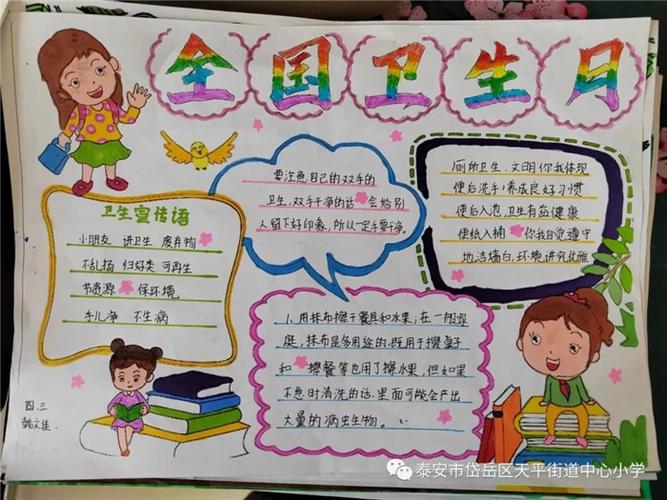 全国卫生日
卫生宣传语
小朋友 讲卫生 废弃物
不乱扔 归好类 可再生
节资源 保环境
手儿净 不生病
要注意自己的双手的
卫生,双手干净的话 会给别
人留下好印象,所以一定手要干净.
厕所卫生,文明你我体现
便后洗手,养成良好习惯
便后入池,卫生有益健康
便纸入桶 你我自觉遵守
地洁墙白,环境讲究优雅
1、用抹布擦干餐具和水果;在一般家
庭,抹布是多用途的:既用于擦桌子
和 擦餐等也用了擦水果,但如果
不急时清洗的话,里面可能会产出
大量的病虫生物.
四.三
韩文佳.
泰安市岱岳区天平街道中心小学